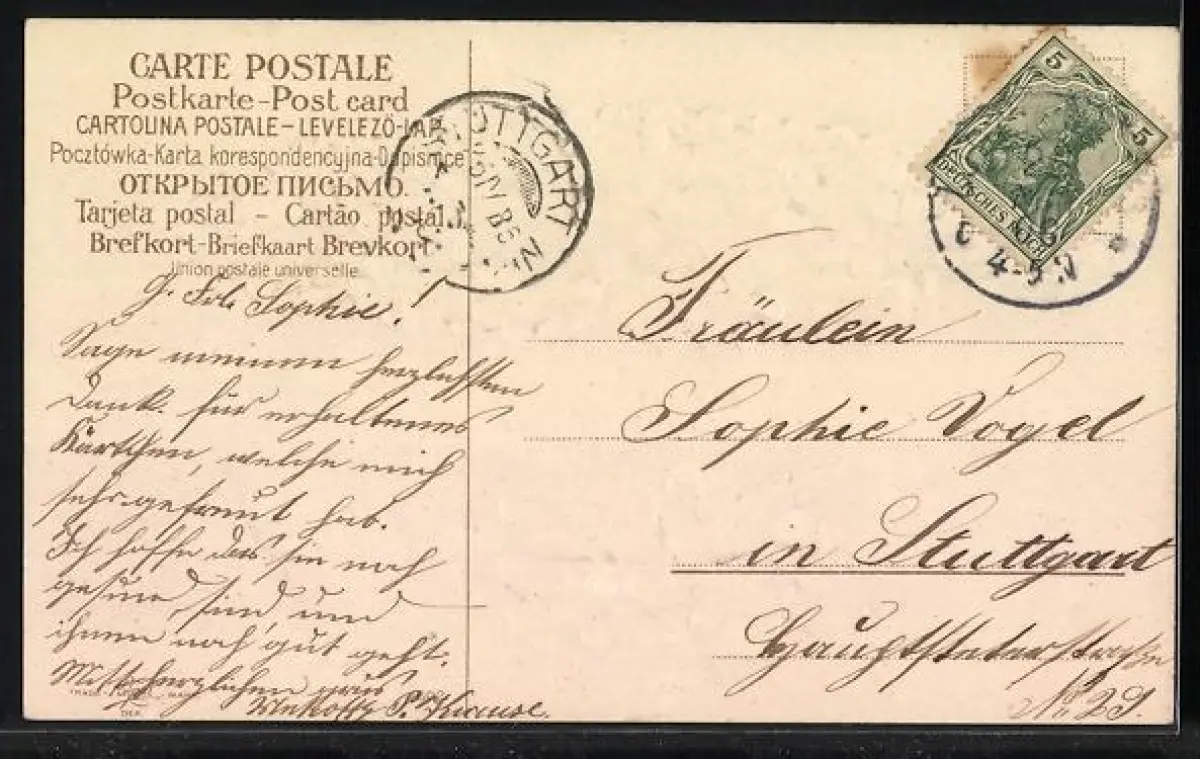 CARTE POSTALE
Postkarte-Post card
CARTOLINA POSTALE-LEVELEZÖ-LAP
Pocztówka-Karta korespondencyjna-Dopisnice
ОТКРЫТОЕ ПИСЬМО.
Tarjeta postal - Cartão postal.
Brefkort-Briefkaart Brevkort
Union postale universelle
G. Frl. Sophie!
Sage meinen herzlichsten
Dank. für erhaltenes
Kärtchen, welche mich
sehr gefreut hab.
Ich hoffe das sie noch
gesund sind, und
ihnen noch gut geht.
Mit herzlichen
P. Krause.
STUTTGART
5
5
DEUTSCHES REICH
4-5 N
Fräulein
Sophie Vogel
in Stuttgart
Hauptstaterstraße
No 29.